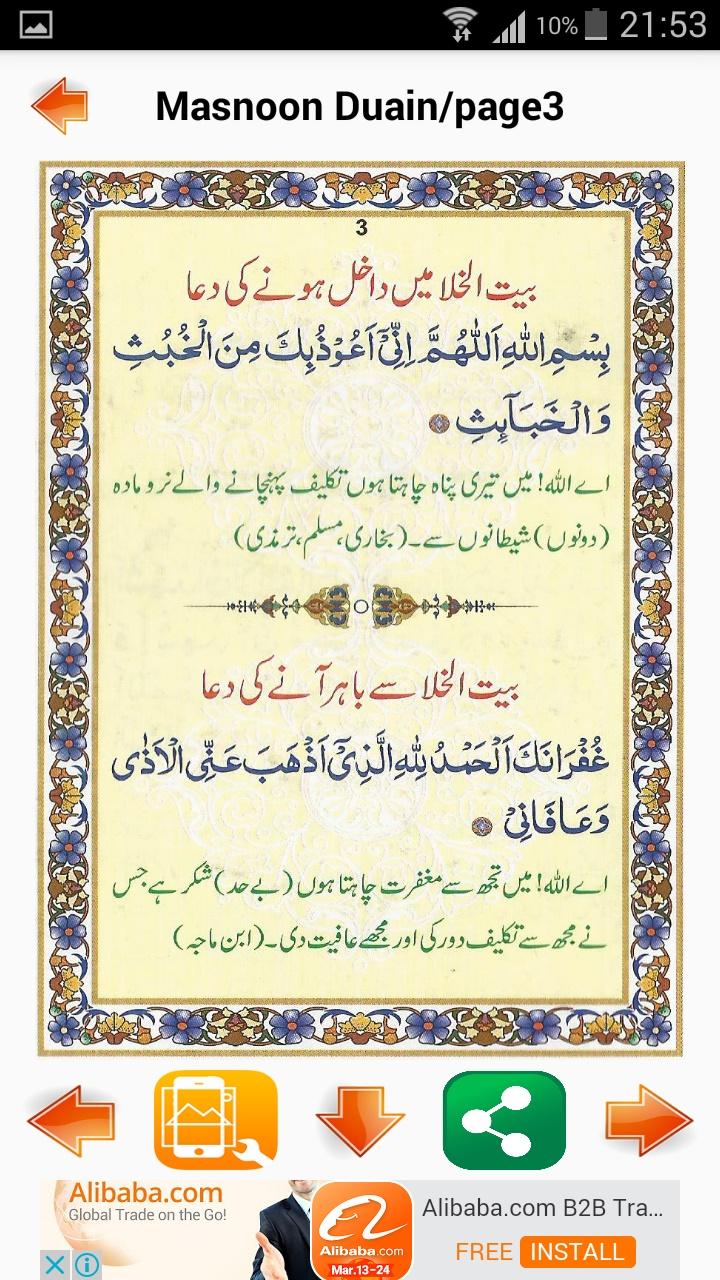 10% 21:53
Masnoon Duain/page3
3
بیت الخلا میں داخل ہونے کی دعا
بِسْمِ اللّٰهِ اَللّٰهُمَّ اِنِّیْٓ اَعُوْذُبِكَ مِنَ الْخُبُثِ
وَالْخَبَآئِثِ
اے اللہ! میں تیری پناہ چاہتا ہوں تکلیف پہنچانے والے نر و مادہ
(دونوں) شیطانوں سے۔ (بخاری، مسلم، ترمذی)
بیت الخلا سے باہر آنے کی دعا
غُفْرَانَكَ اَلْحَمْدُ لِلّٰهِ الَّذِیْٓ اَذْهَبَ عَنِّی الْاَذٰی
وَعَافَانِیْ
اے اللہ! میں تجھ سے مغفرت چاہتا ہوں (بے حد) شکر ہے جس
نے مجھ سے تکلیف دور کی اور مجھے عافیت دی۔ (ابن ماجہ)
Alibaba.com
Global Trade on the Go!
Alibaba.com
Mar.13-24
Alibaba.com B2B Tra...
FREE INSTALL